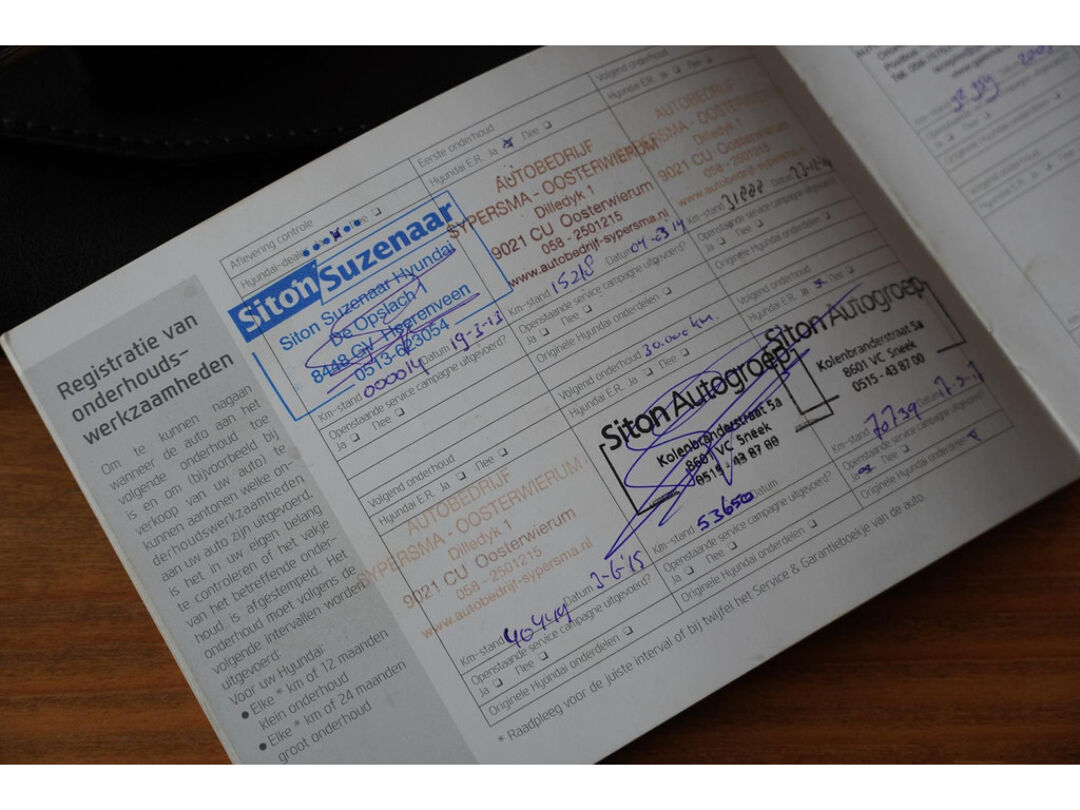 Registratie van
onderhouds-
werkzaamheden
Om te kunnen nagaan
wanneer de auto aan het
volgende onderhoud toe
is en om (bijvoorbeeld bij
verkoop van uw auto) te
kunnen aantonen welke on-
derhoudswerkzaamheden
aan uw auto zijn uitgevoerd,
het in uw eigen belang
te controleren of het vakje
van het betreffende onder-
houd is afgestempeld. Het
onderhoud moet volgens de
volgende intervallen worden
uitgevoerd:
voor uw Hyundai:
• Elke * km of 12 maanden
klein onderhoud
• Elke * km of 24 maanden
groot onderhoud
Aflevering controle
Hyundai-dealer Ja Nee
Siton Suzenaar
Siton Suzenaar Hyundai
De Opslach 1
8448 GV Heerenveen
0513-623054
Km-stand 000014 Datum 19-3-13
Openstaande service campagne uitgevoerd?
Ja Nee
Eerste onderhoud
Hyundai E.R. Ja Nee
AUTOBEDRIJF
SYPERSMA - OOSTERWIERUM
Dilledyk 1
9021 CU Oosterwierum
058 - 2501215
www.autobedrijf-sypersma.nl
Km-stand 15218 Datum 04-03-14
Openstaande service campagne uitgevoerd?
Ja Nee
Originele Hyundai onderdelen
Volgend onderhoud
Hyundai E.R. Ja Nee
AUTOBEDRIJF
SYPERSMA - OOSTERWIERUM
Dilledyk 1
9021 CU Oosterwierum
058 - 2501215
www.autobedrijf-sypersma.nl
Km-stand Datum
Openstaande service campagne uitgevoerd?
Ja Nee
Originele Hyundai onderdelen
Volgend onderhoud
Hyundai E.R. Ja Nee
AUTOBEDRIJF
SYPERSMA - OOSTERWIERUM
Dilledyk 1
9021 CU Oosterwierum
058 - 2501215
www.autobedrijf-sypersma.nl
Km-stand 40449 Datum 3-6-15
Openstaande service campagne uitgevoerd?
Ja Nee
Originele Hyundai onderdelen
Volgend onderhoud 30.000 km.
Hyundai E.R. Ja Nee
Siton Autogroep
Kolenbranderstraat 5a
8601 VC Sneek
0515 - 43 87 00
Km-stand 53650 Datum
Openstaande service campagne uitgevoerd?
Ja Nee
Originele Hyundai onderdelen
Volgend onderhoud
Hyundai E.R. Ja Nee
Siton Autogroep
Kolenbranderstraat 5a
8601 VC Sneek
0515 - 43 87 00
Km-stand 70739 Datum
Openstaande service campagne uitgevoerd?
Ja Nee
Originele Hyundai onderdelen
* Raadpleeg voor de juiste interval of bij twijfel het Service & Garantieboekje van de auto.